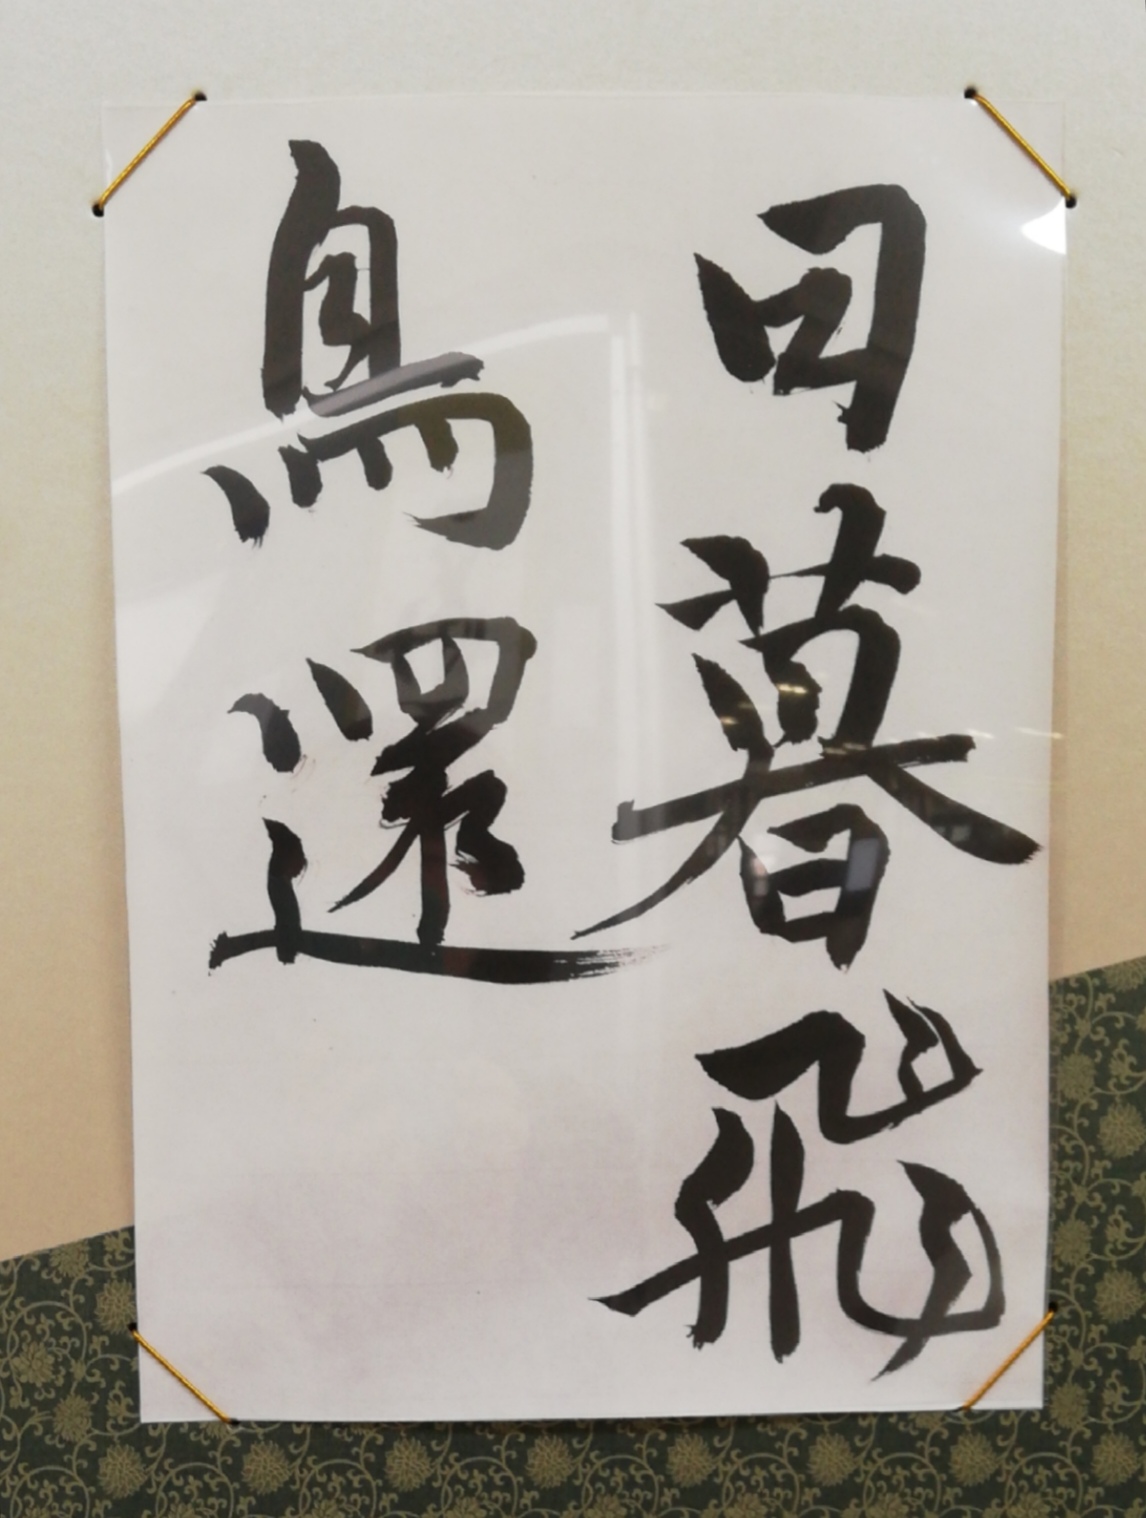 日暮飛
鳥還